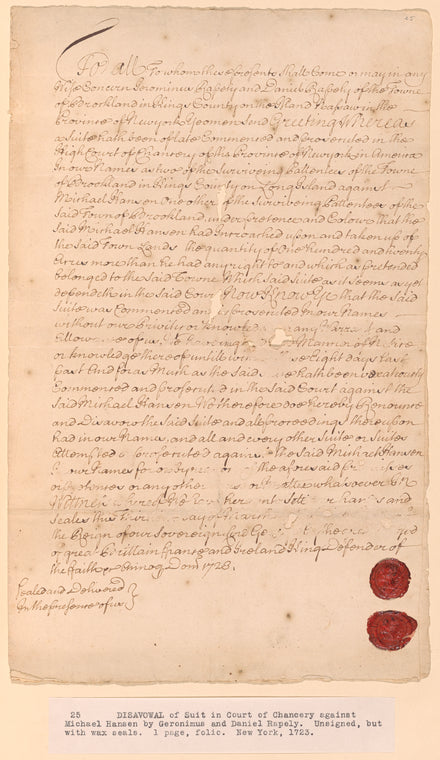 25
To All To whom these presents Shall Come or may in any
Wise Concern Geronimus Rapely and Daniel Rapely of the Towne
of Brookland in Kings County on the Island Nassaw in the
Province of Newyork Yeomen Send Greeting Whereas
a Suite hath been of late Commenced and Prosecuted in the
High Court of Chancery of this Province of Newyork in America
In our Names as two of the Surviveing Pattentees of the Towne
of Brookland in Kings County on Long Island against
Michael Hansen One other of the Surviveing Pattentees of the
Said Town of Brookland, under pretence and Colour that the
Said Michael Hansen had Incroached upon and taken up of
the Said Town Lands the quantity of One hundred and twenty
Acres more than he had any right to and which as pretended
belonged to the Said Towne Which Said Suite as it seems as yet
dependeth in the Said Court Now Know Ye that the Said
Suite was Commenced and prosecuted In our Names
without our Privity or Knowledge any and
Allow of us haveing Manner of
or Knowledge thereof untill with Eight days last
past And for as Much as the Said hath been vexatiously
Commenced and prosecuted in the Said Court against the
Said Michael Hansen We therefore doe hereby Renounce
and Disavow the Said Suite and all proceedings thereupon
had in our Names, and all and every other Suite or Suites
Attempted or prosecuted against the Said Michael Hansen
In our Names for on the aforesaid
or any other whatsoever In
Witness whereof We have hereunto Sett our hands and
Seales this day of March
the Reign of our Sovereign Lord
of great Brittain france and Ireland King Defender of
the faith &c Annoq Dom 1723.
Sealed and Delivered
In the presence of us
25 DISAVOWAL of Suit in Court of Chancery against
Michael Hansen by Geronimus and Daniel Rapely. Unsigned, but
with wax seals. 1 page, folio. New York, 1723.